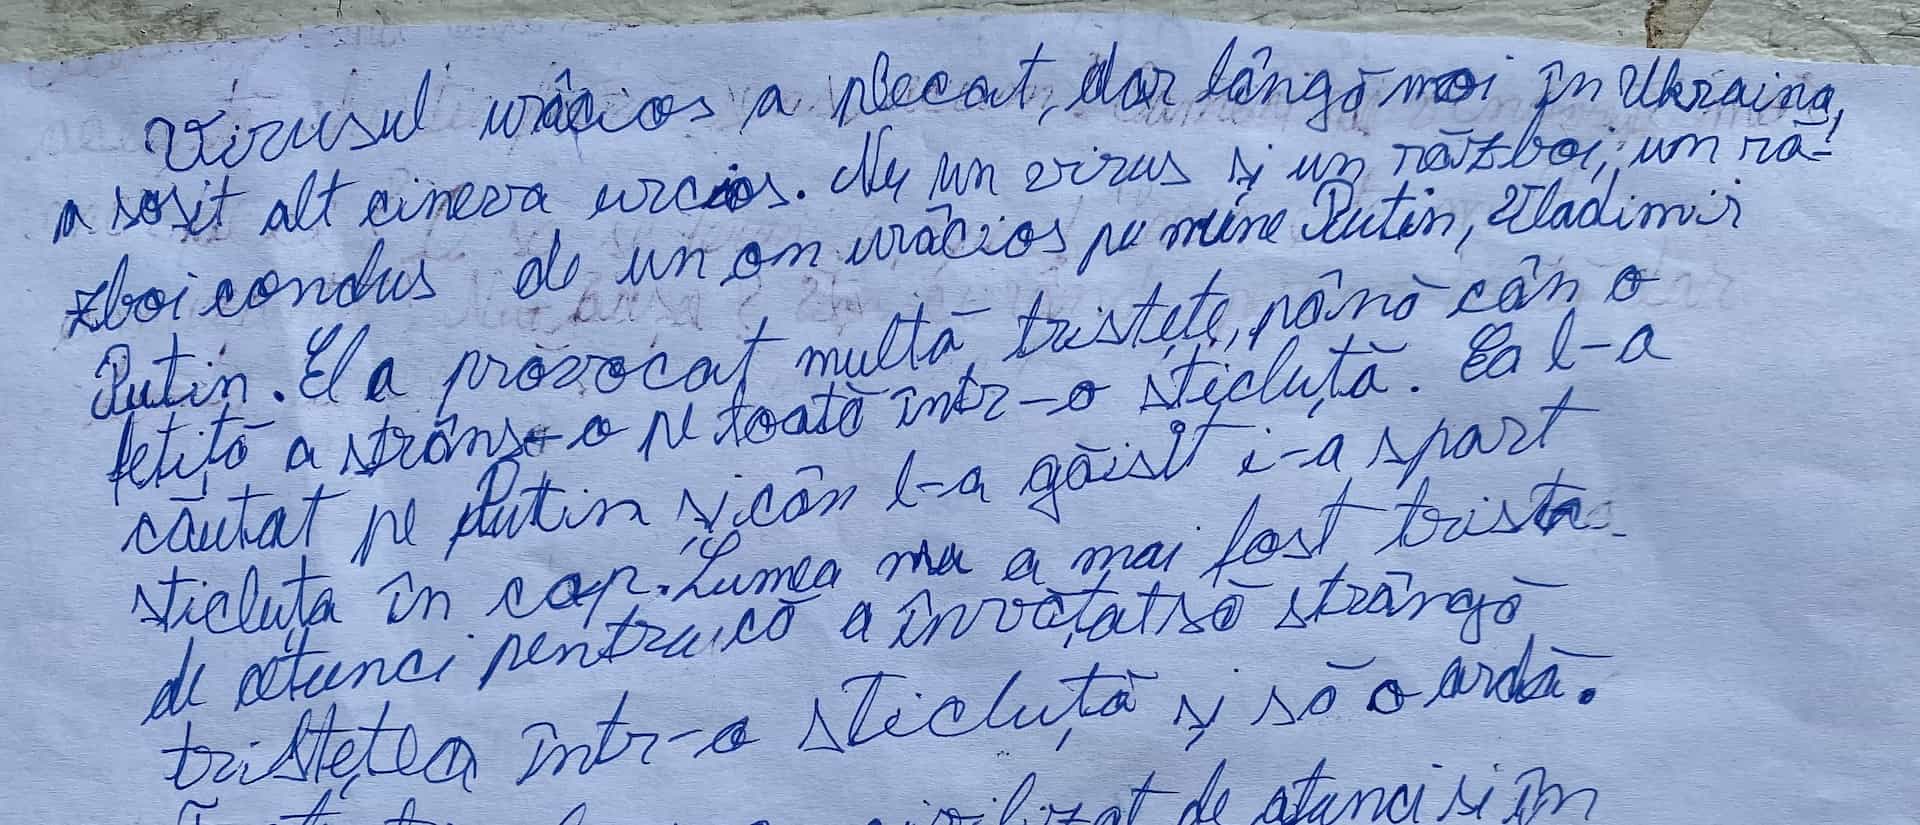 Virusul urâcios a plecat, dar lângă noi în Ukraina,
a sosit alt cineva urcios. Nu un virus și un război, un ră-
zboi condus de un om urâcios pe nume Putin, Vladimir
Putin. El a provocat multă tristețe, până cân o
fetiță a strâns-o pe toată într-o sticluță. Ea l-a
căutat pe Putin și cân l-a găisit i-a spart
sticluța în cap. Lumea nu a mai fost trista
de atunci pentru că a învățat să strângă
tristețea într-o sticluță și să o ardă.
de atunci si în